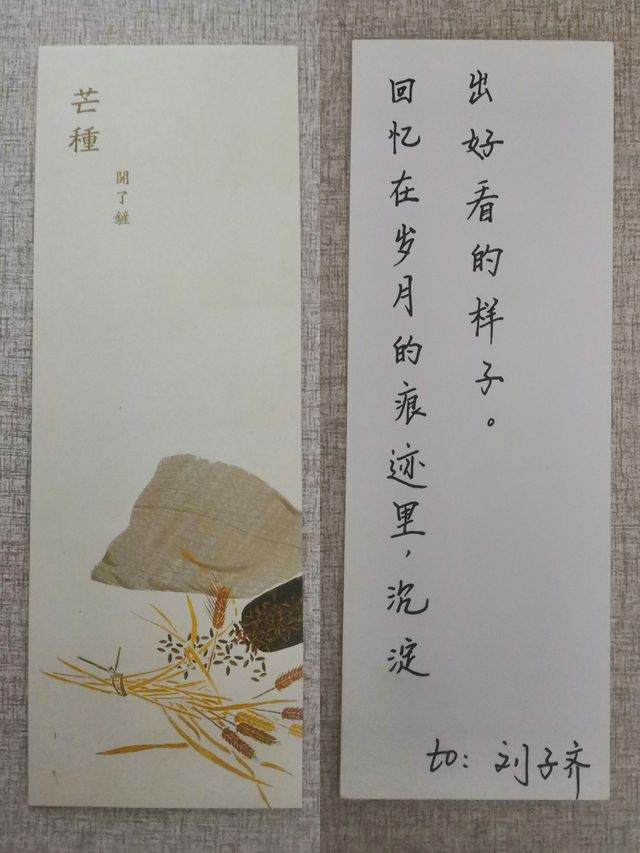 芒種
開了鏟
回忆在岁月的痕迹里，沉淀
出好看的样子。
to: 刘子齐